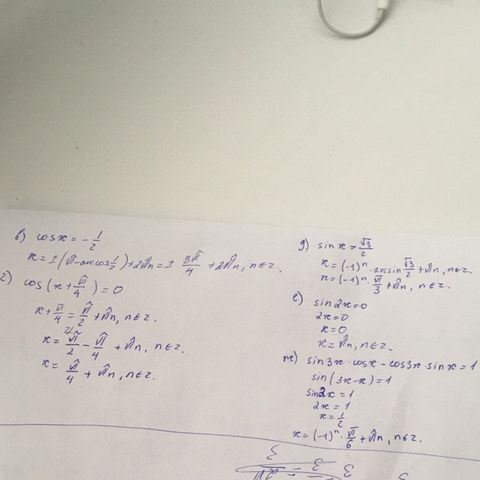 б) cos x = - 1/2
x = ± (π - arccos 1/2) + 2πn = ± 3π/4 + 2πn, n∈z.
г) cos (x + π/4) = 0
x + π/4 = π/2 + πn, n∈z.
x = π/2 - π/4 + πn, n∈z.
x = π/4 + πn, n∈z.
д) sin x = √3/2
x = (-1)ⁿ · arcsin √3/2 + πn, n∈z.
x = (-1)ⁿ · π/3 + πn, n∈z.
е) sin 2x = 0
2x = 0
x = 0
x = πn, n∈z.
ж) sin 3x · cos x - cos 3x · sin x = 1
sin (3x - x) = 1
sin 2x = 1
2x = 1
x = 1/2
x = (-1)ⁿ · π/6 + πn, n∈z.